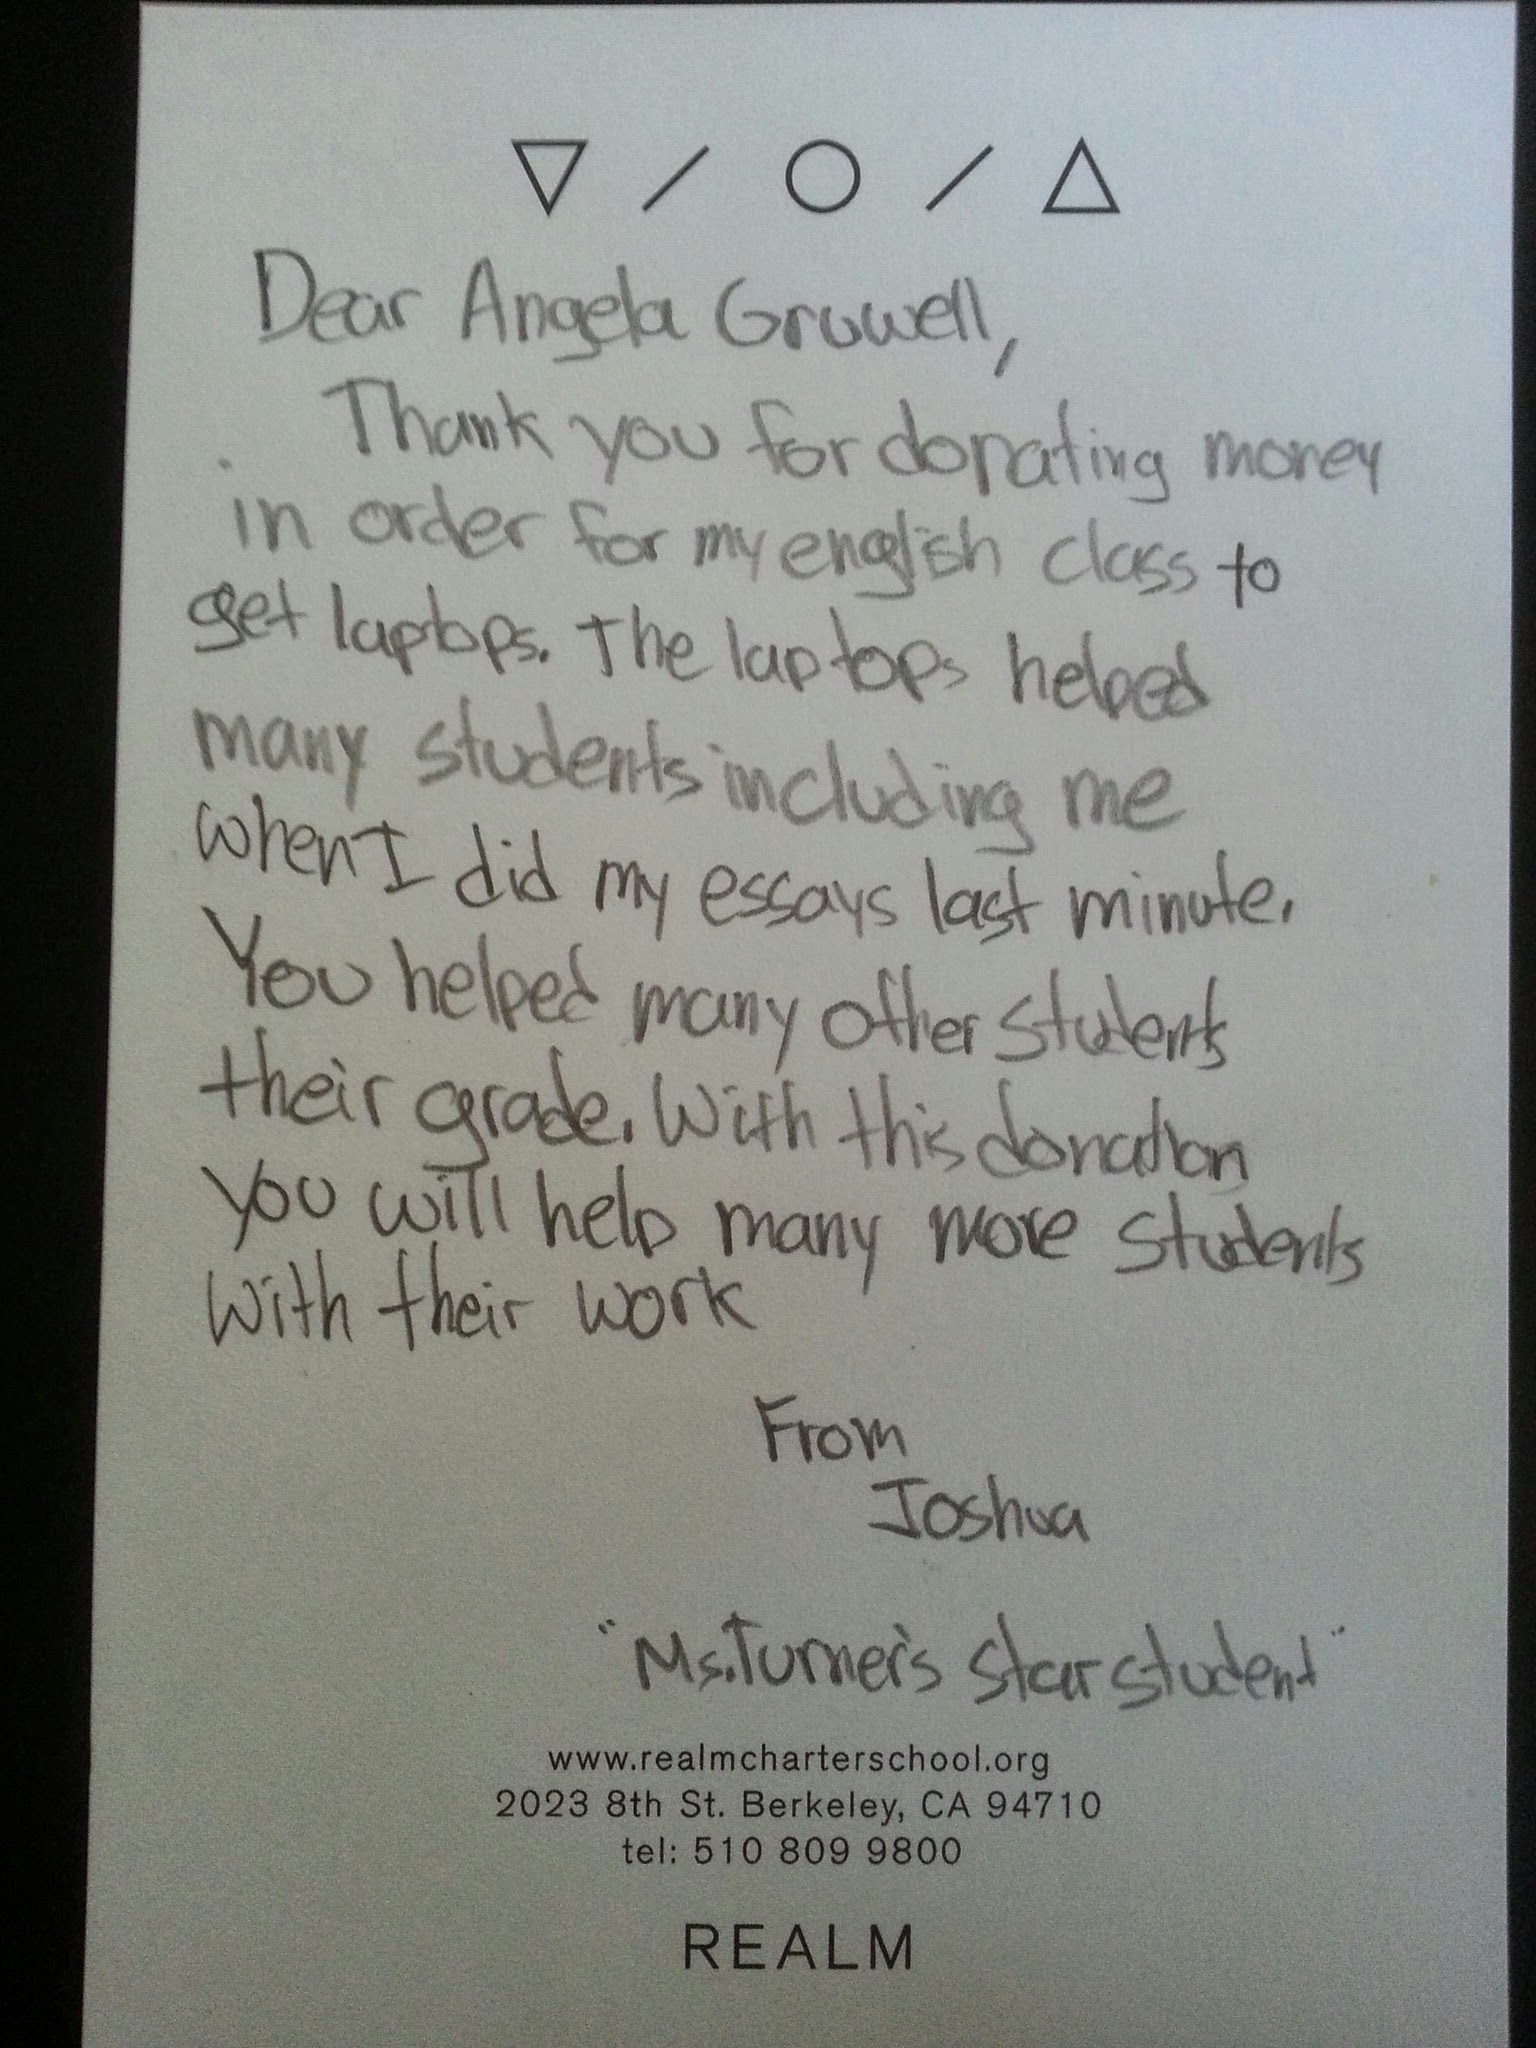 Dear Angela Gruwell,
Thank you for donating money
in order for my english class to
get laptops. The laptops helped
many students including me
when I did my essays last minute.
You helped many other students
their grade. With this donation
you will help many more students
with their work
From
Joshua
"Ms.Turner's star student"
www.realmcharterschool.org
2023 8th St. Berkeley, CA 94710
tel: 510 809 9800
REALM